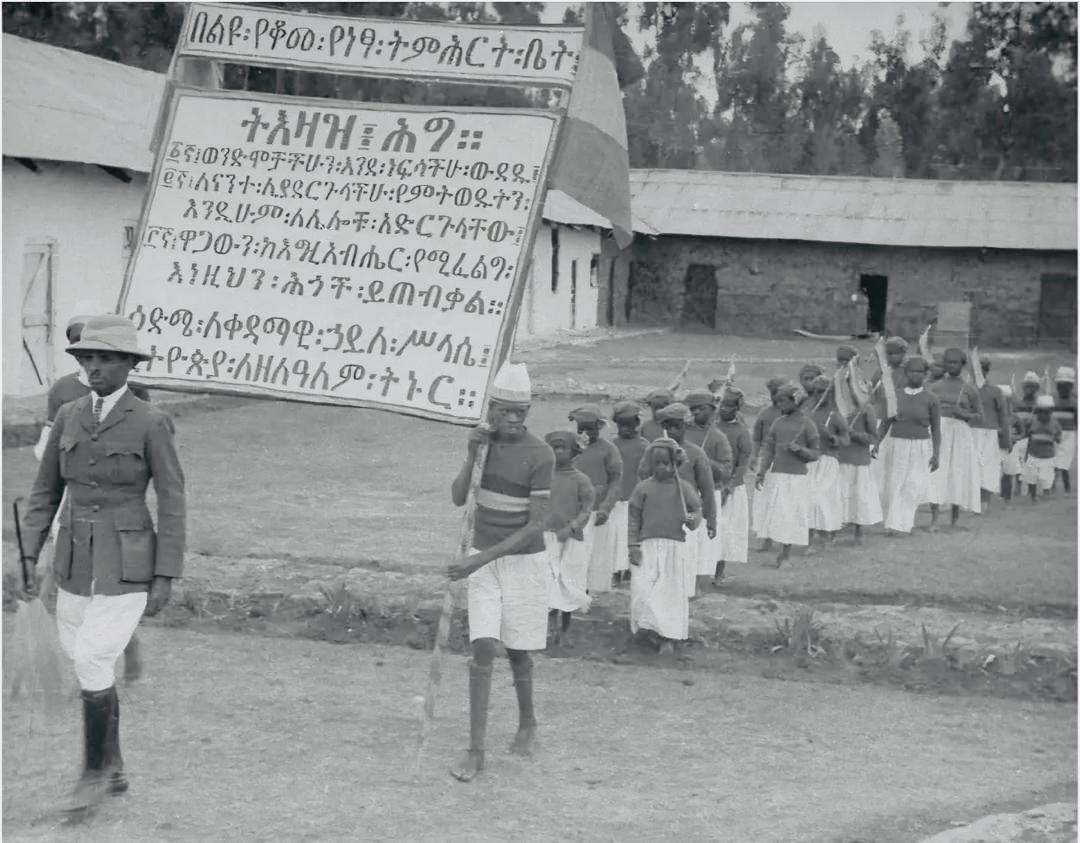 በልዩ፡የቆመ፡የነፃ፡ትምሕርት፡ቤት፡
ትእዛዝ፤ሕግ፡፡
፩ኛ፤ወንድሞቻችሁን፡እንደ፡ነፍሳችሁ፡ውደዱ፤
፪ኛ፤ለናንተ፡ሊያደርጉላችሁ፡የምትወዱትን፡
እንዲሁም፡ለሌሎቹ፡አድርጉላቸው፤
፫ኛ፤ዋጋውን፡ከእግዚአብሔር፡የሚፈልግ፡
እነዚህን፡ሕጎች፡ይጠብቃል፡፡
ዕድሜ፡ለቀዳማዊ፡ኃይለ፡ሥላሴ፤
ኢትዮጵያ፡ለዘለዓለም፡ትኑር፡፡